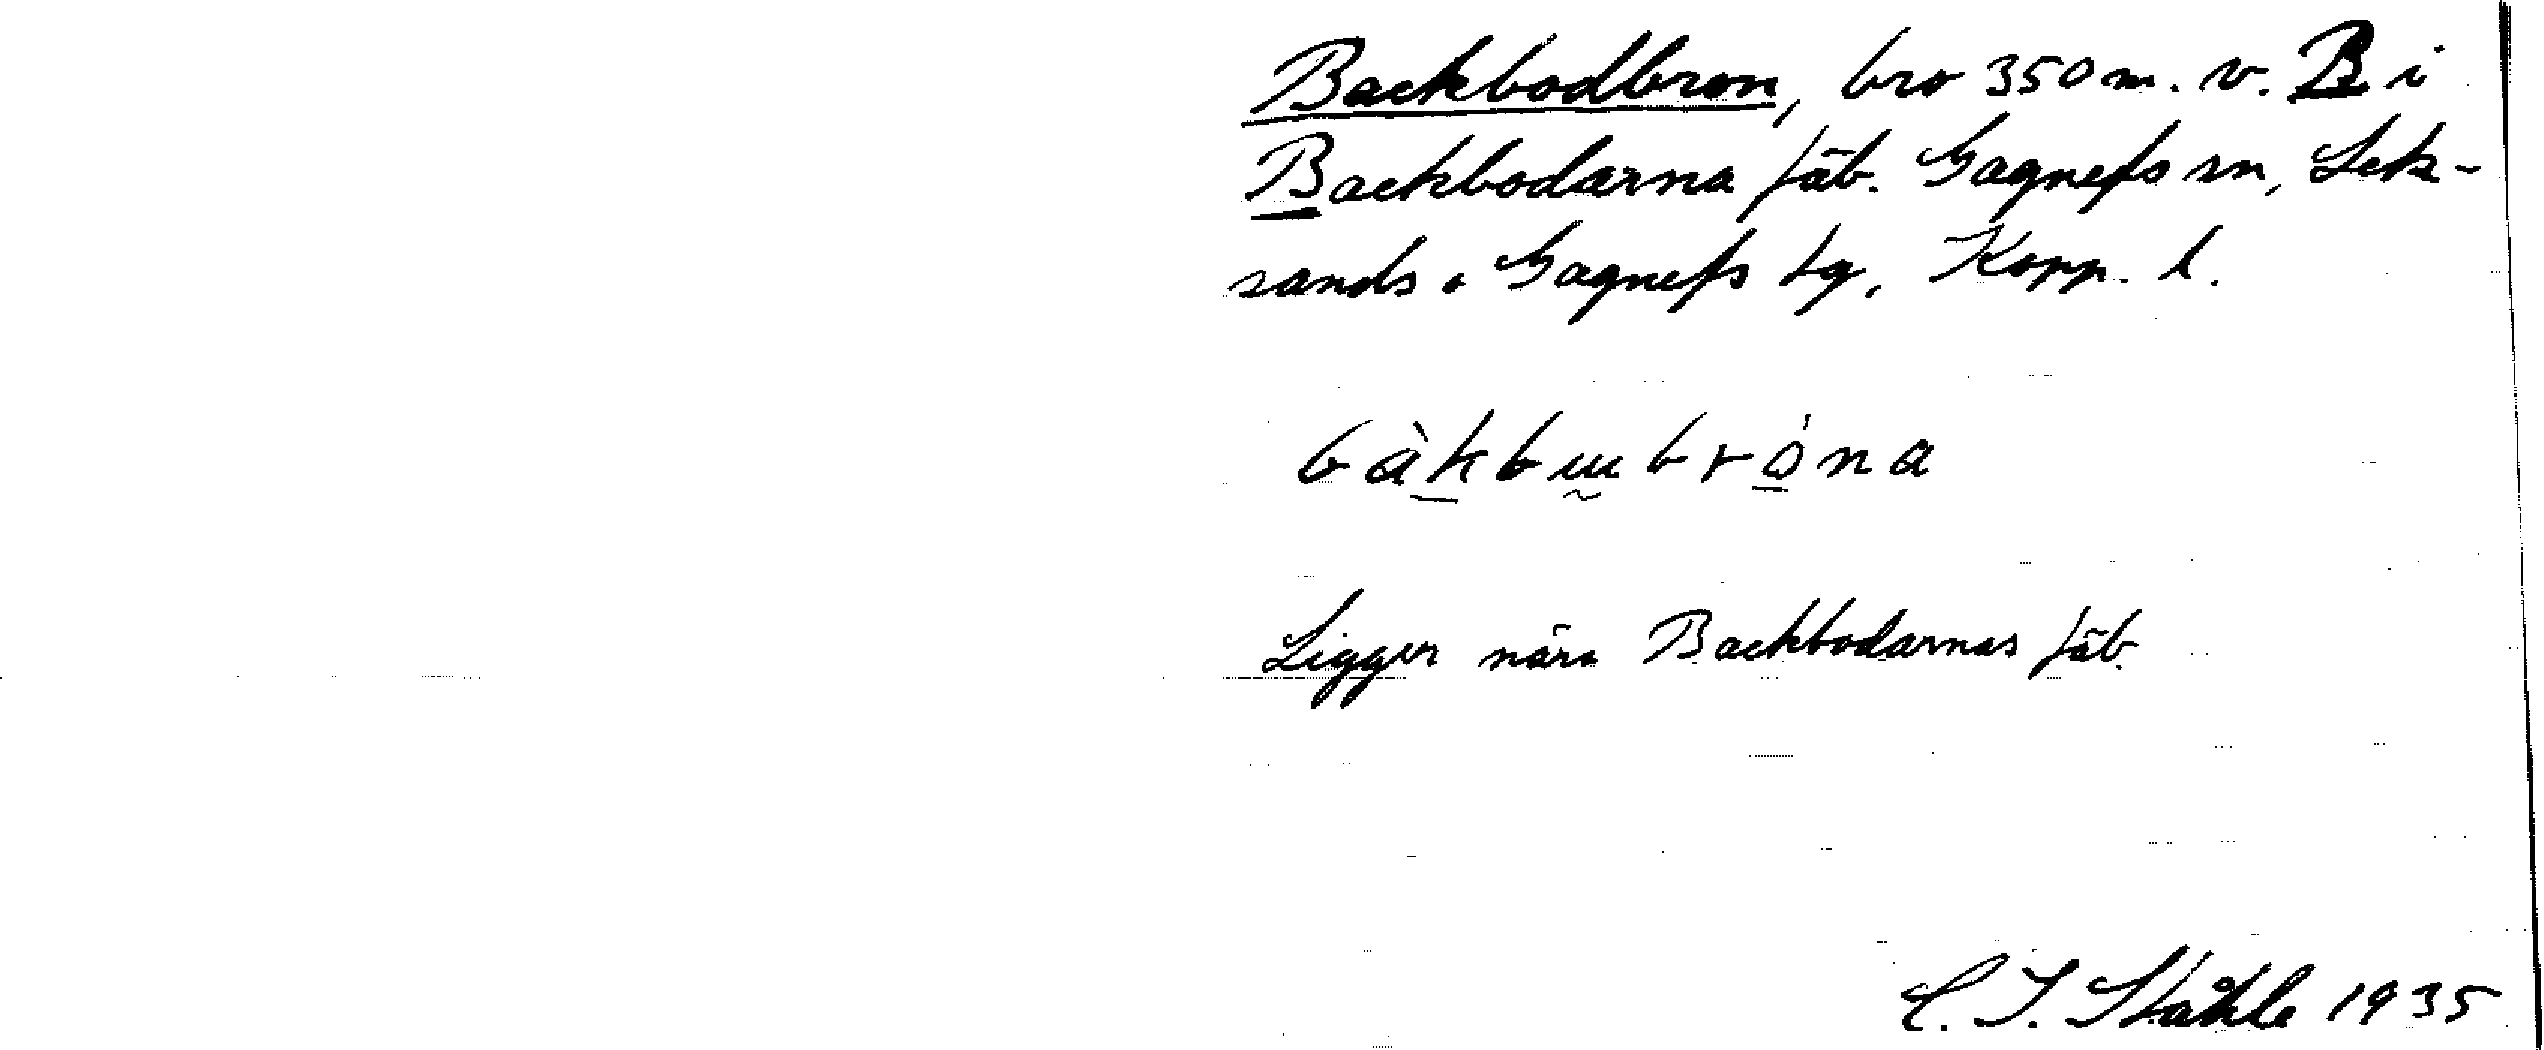 Backbodbron, bro 350 m. v. B i
Backbodarna fäb. Gagnefs sn, Lek-
sands o Gagnefs tg, Kopp. l.
bàkbɯbróna
Ligger nära Backbodarnas fäb.
C. I. Ståhle 1935